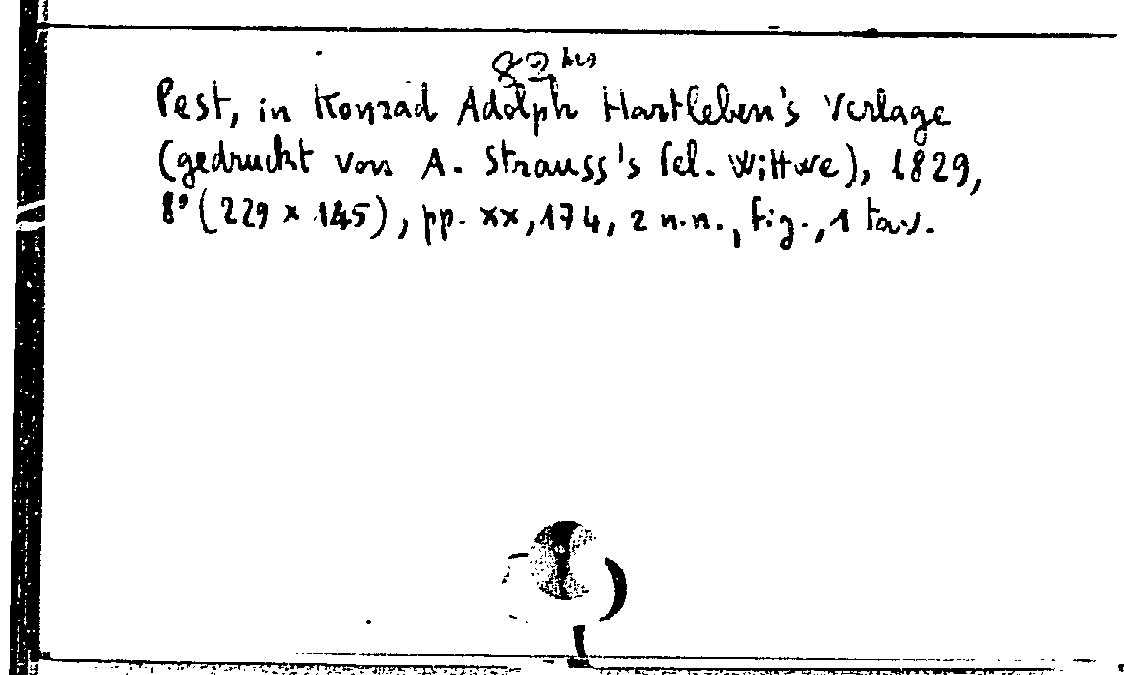 82 bis
Pest, in Konrad Adolph Hartleben's Verlage
(gedruckt von A. Strauss's sel. Wittwe), 1829,
8° (229 x 145), pp. xx, 174, 2 n.n., fig., 1 tav.